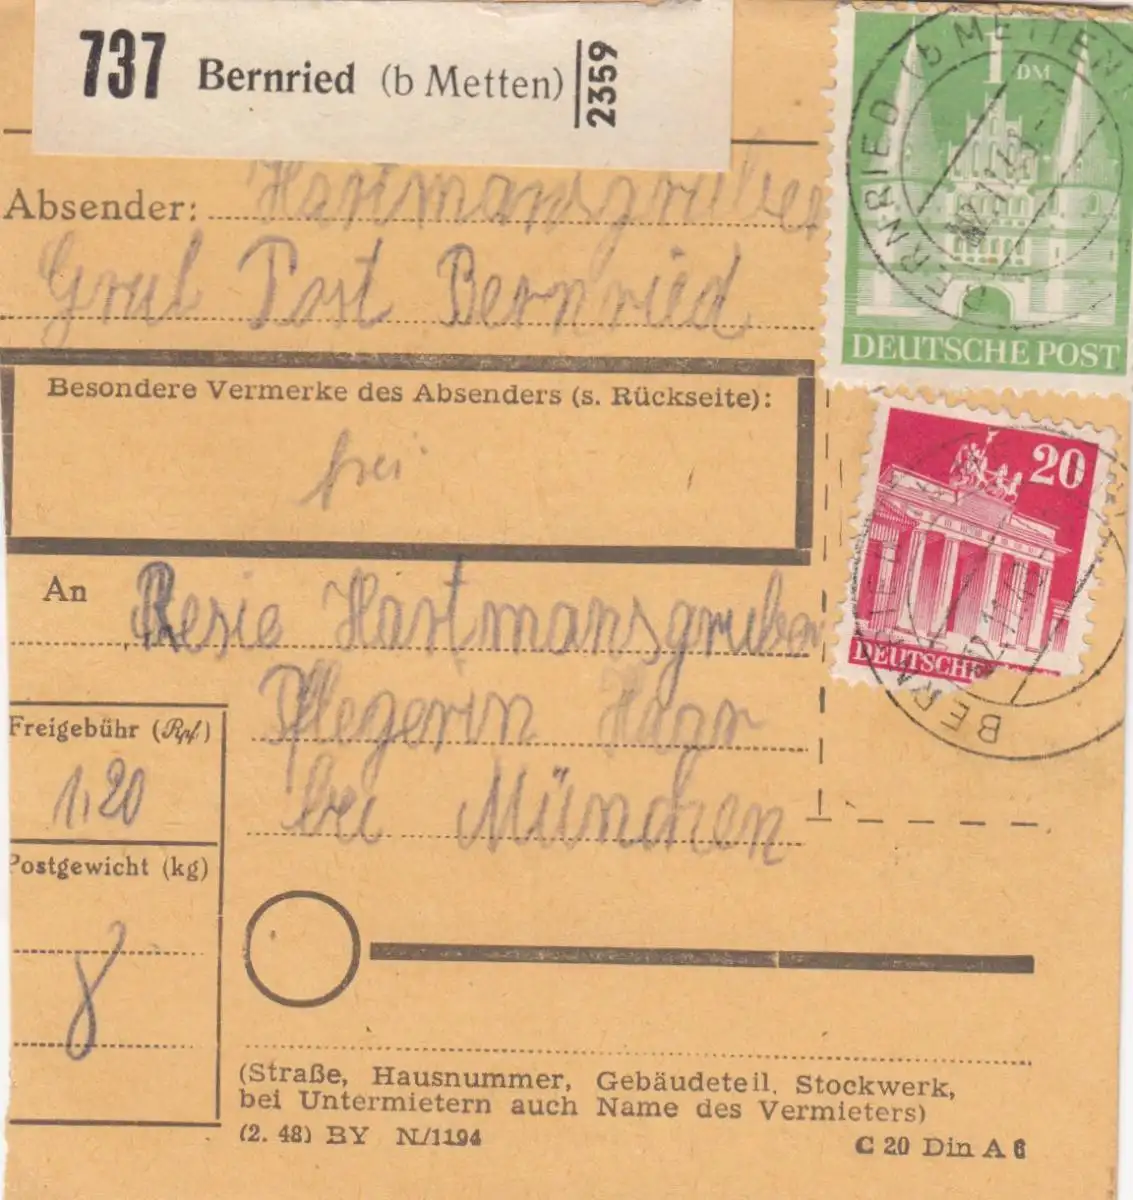 737 Bernried (b Metten) 2359
Absender: Hartmansgruber
Grub Post Bernried
Besondere Vermerke des Absenders (s. Rückseite):
frei
An Resie Hartmansgruber
Pflegerin Haar
bei München
Freigebühr (Rpf.)
1,20
Postgewicht (kg)
8
(Straße, Hausnummer, Gebäudeteil, Stockwerk,
bei Untermietern auch Name des Vermieters)
(2. 48) BY N/1194
C 20 Din A 6
1 DM
DEUTSCHE POST
BERNRIED (b METTEN
20
DEUTSCHE